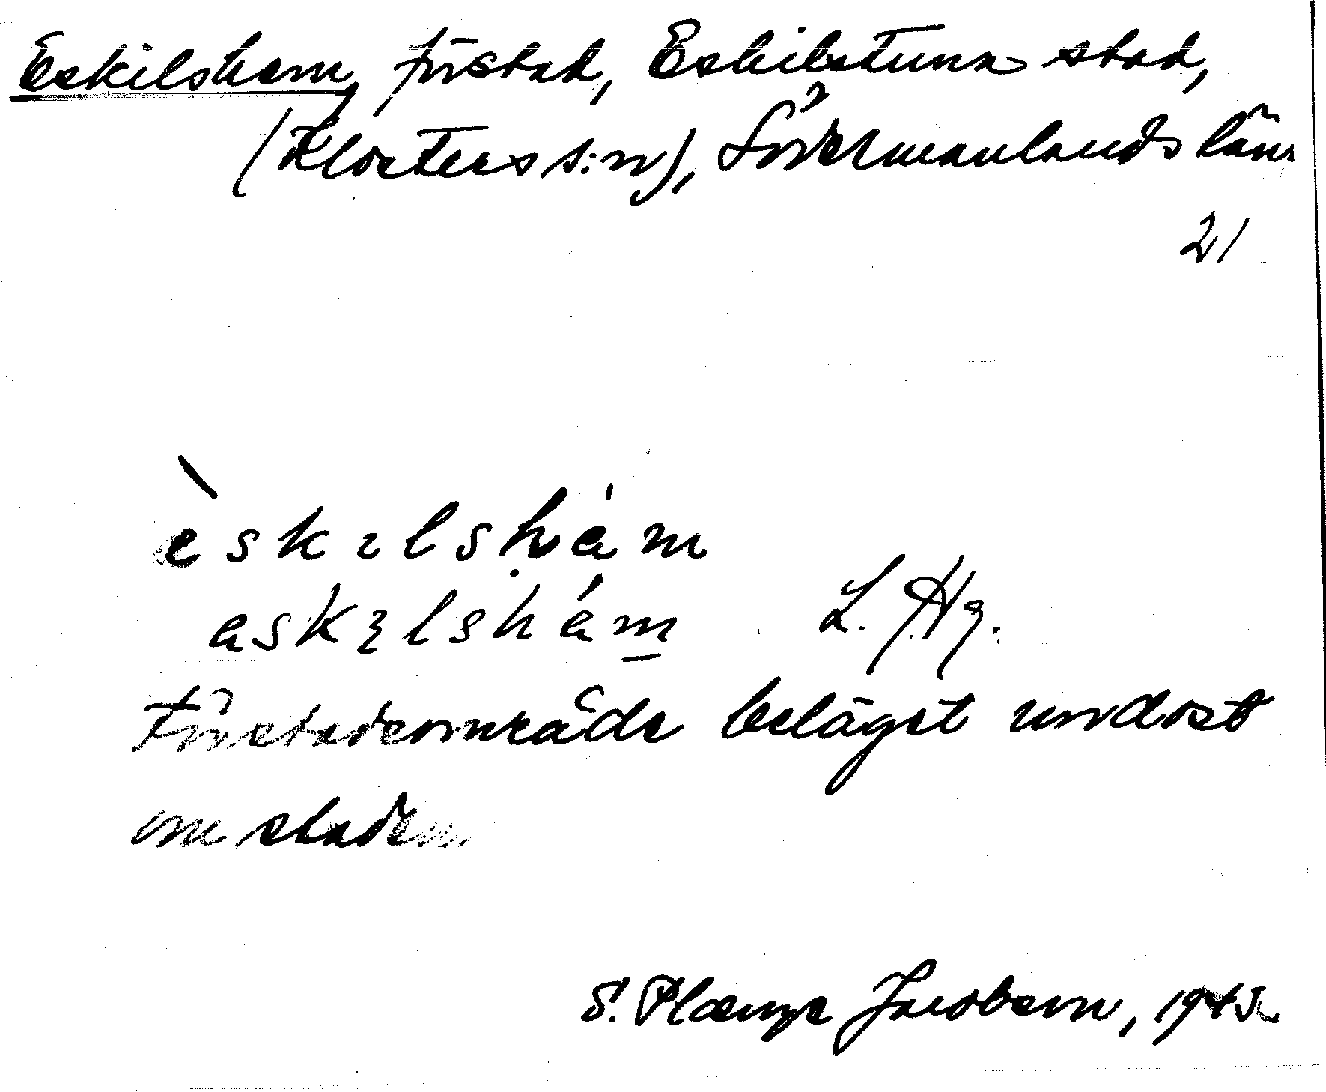 Eskilshem, förstad, Eskilstuna stad,
(Klosters s:n), Södermanlands län
21
èskɩlshȧm
askɩlshám L. Hg.
Förstadsområde beläget nordost
om staden
S. Plænge Jacobson, 1945.